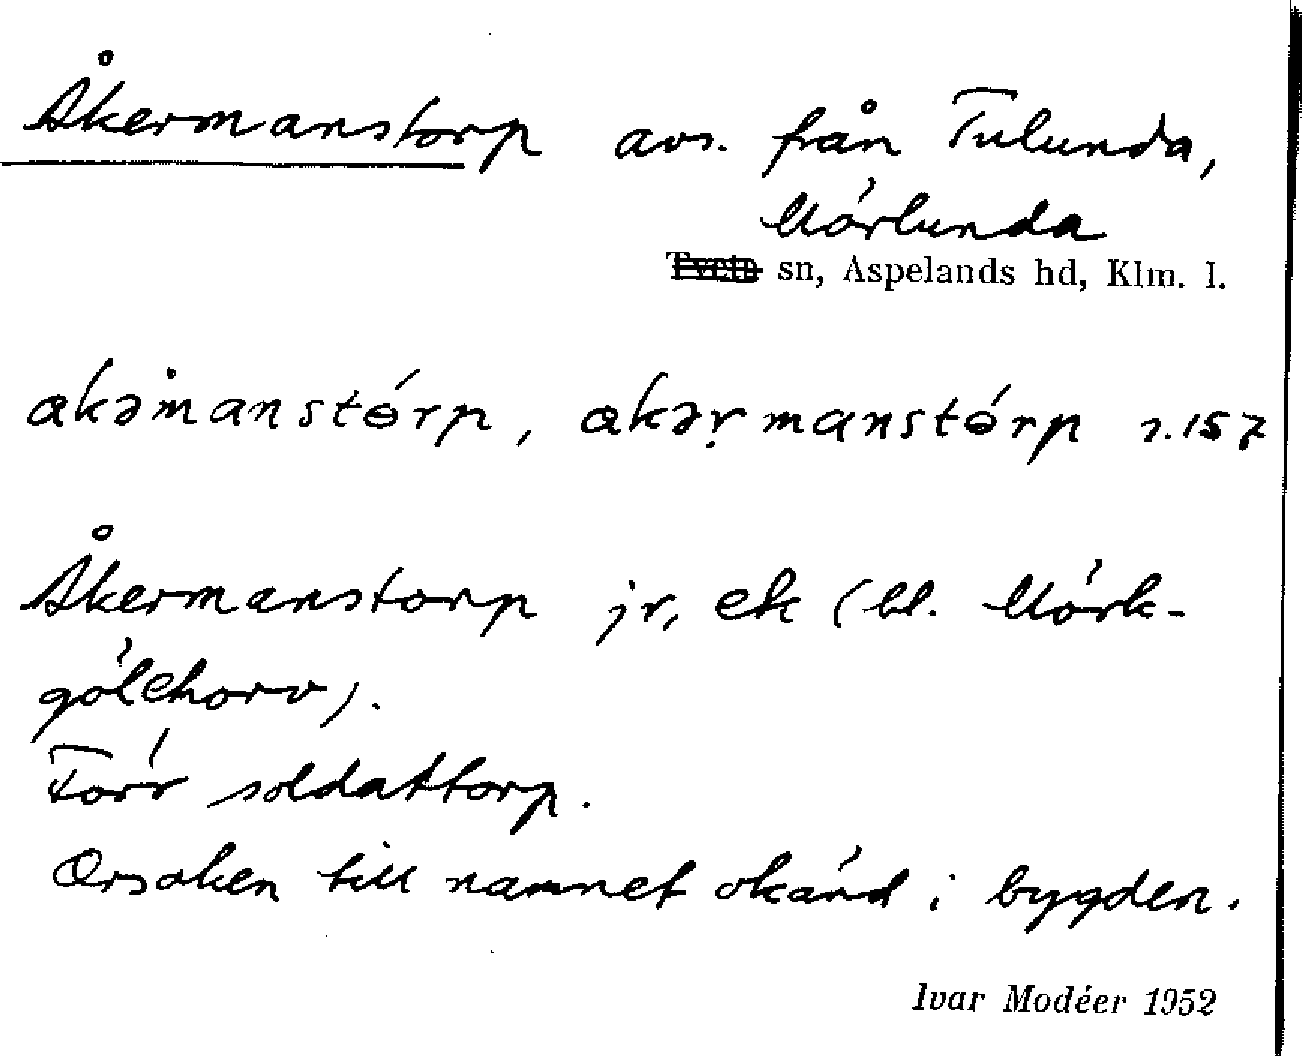 Åkermanstorp avs. från Tulunda,
Mörlunda
Tveta sn, Aspelands hd, Klm. l.
akəmanstórp, akəṛmanstórp s. 157
Åkermanstorp jr, ek (bl. Mörk-
gölehorv).
Förr soldattorp.
Orsaken till namnet okänd i bygden.
Ivar Modéer 1952